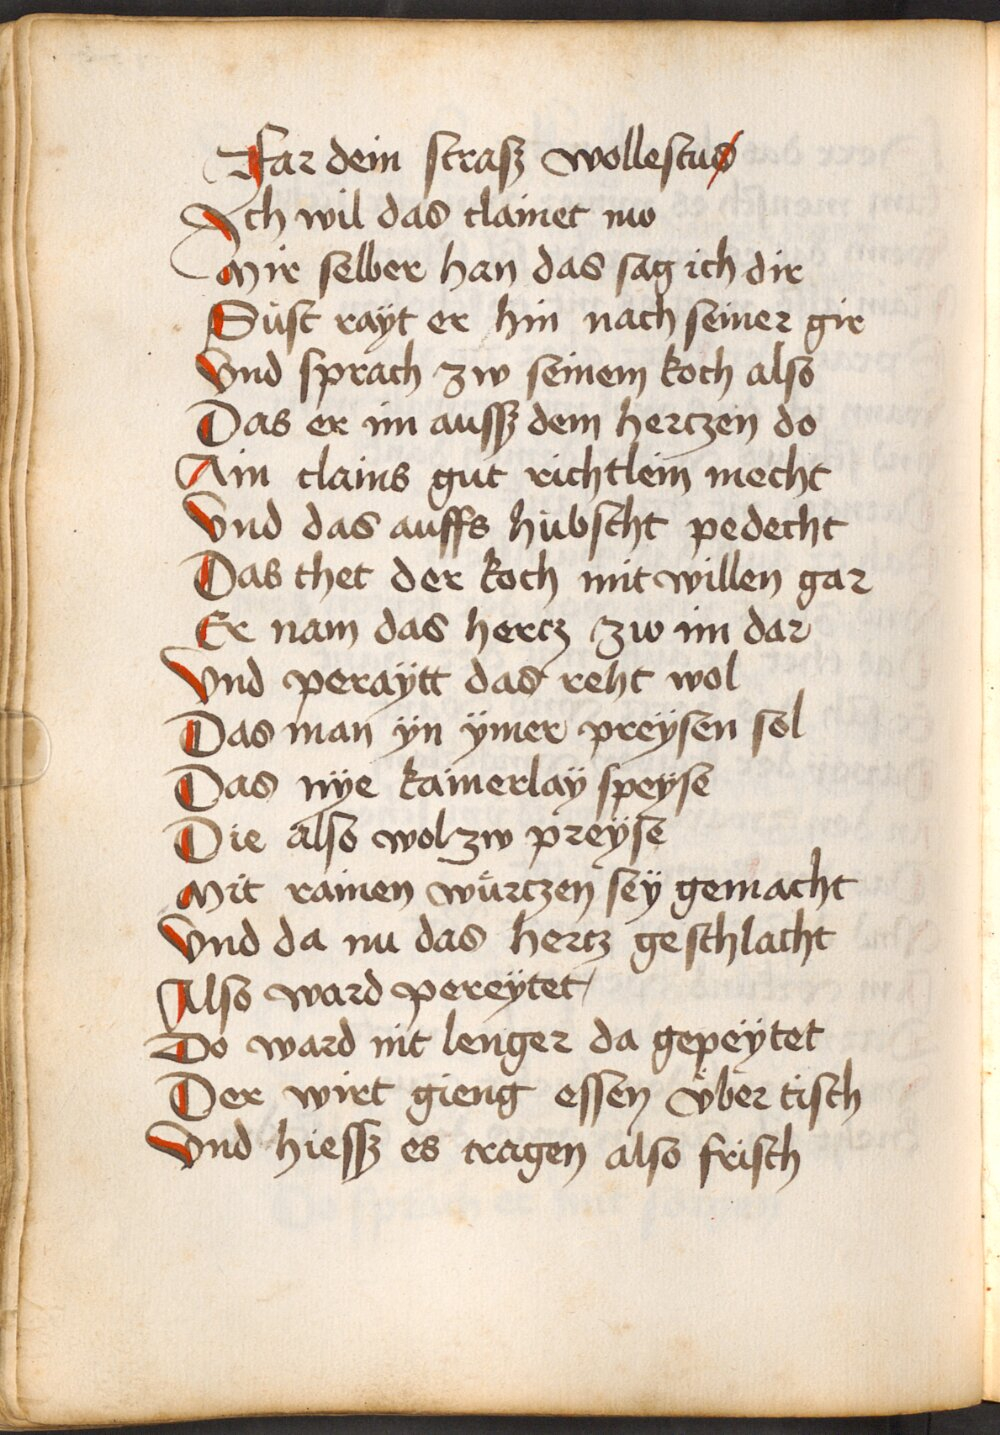 Far dein strasz wollestus
Ich wil das clainet nw
Mir selber han das sag ich dir
Süst rayt er hin nach seiner gir
Vnd sprach zw seinem koch also
Das er im aussz dem hertzen do
Ain clains gut richtlein mecht
Vnd das auffs hübscht pedecht
Das thet der koch mit willen gar
Er nam das hertz zw im dar
Vnd peraÿtt das reht wol
Das man ÿn ÿmer preÿsen sol
Das nÿe kainerlaÿ speÿse
Die also wol zw preÿse
Mit rainen würtzen seÿ gemacht
Vnd da nu das hertz geschlacht
Also ward pereÿtet
Do ward nit lenger da gepeÿtet
Der wirt gieng essen vber tisch
Vnd hiessz es tragen also frisch